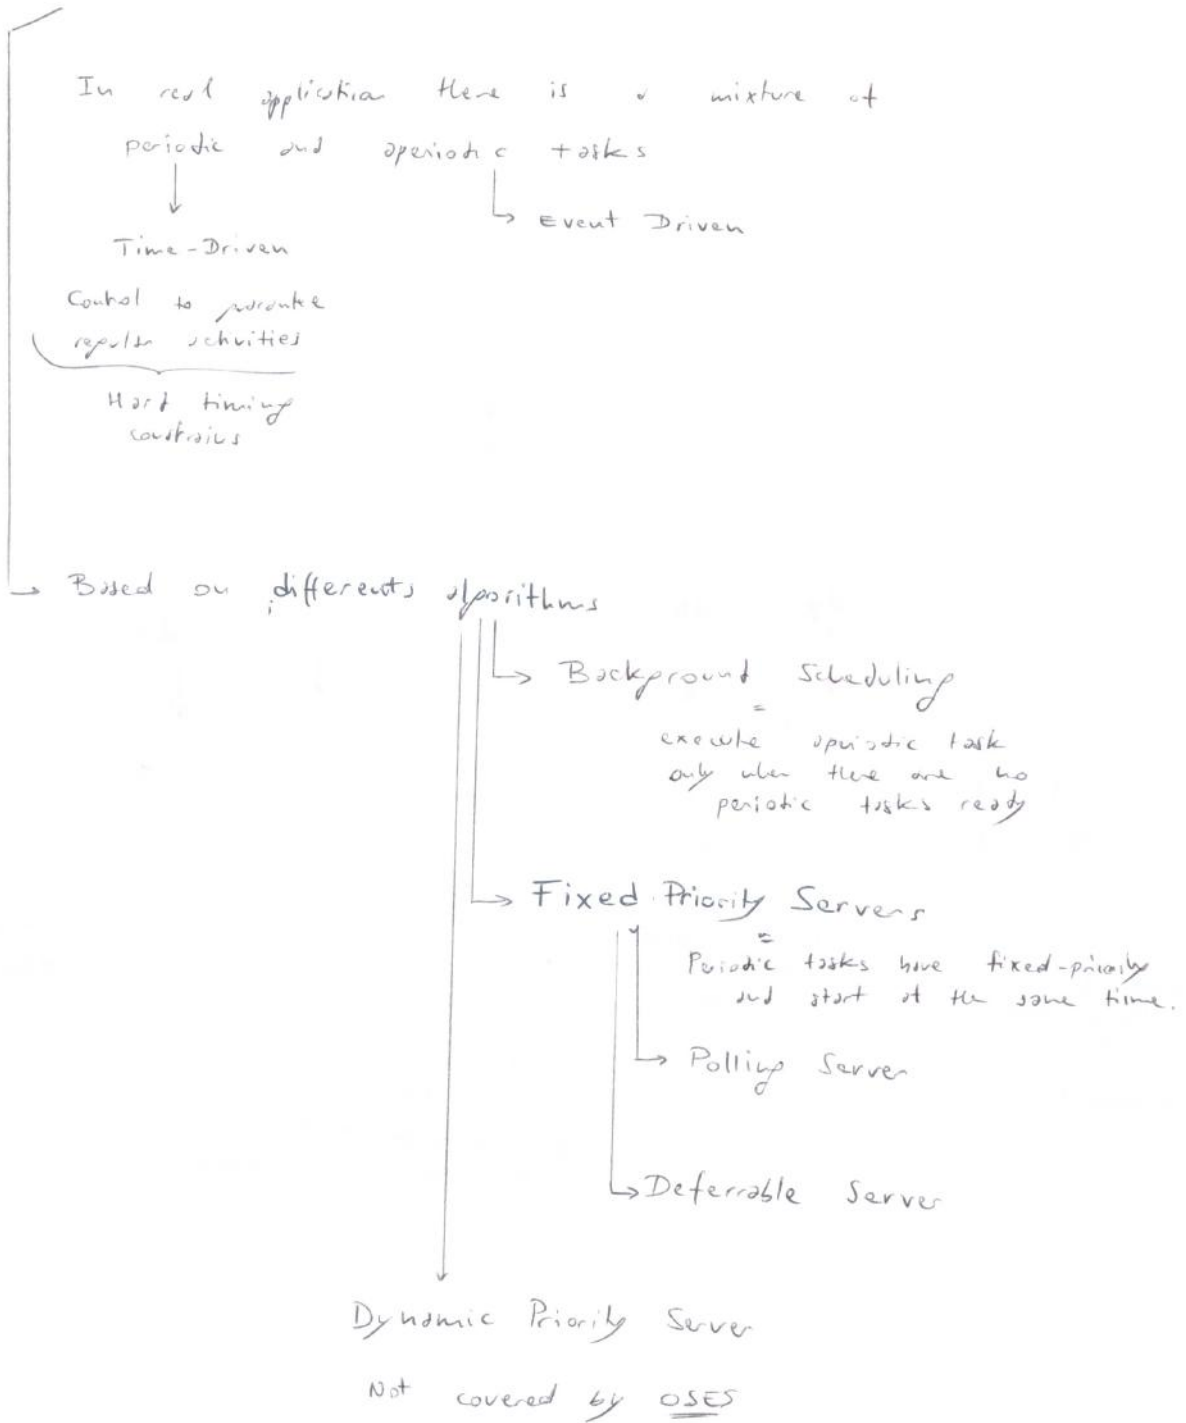 In real application there is a mixture of
periodic and aperiodic tasks
Event Driven
Time-Driven
Control to guarantee
regular activities
Hard timing
constrains
Based on differents algorithms
Background Scheduling
=
execute aperiodic task
only when there are no
periodic tasks ready
Fixed Priority Servers
=
Periodic tasks have fixed-priority
and start at the same time.
Polling Server
Deferrable Server
Dynamic Priority Server
Not covered by OSES